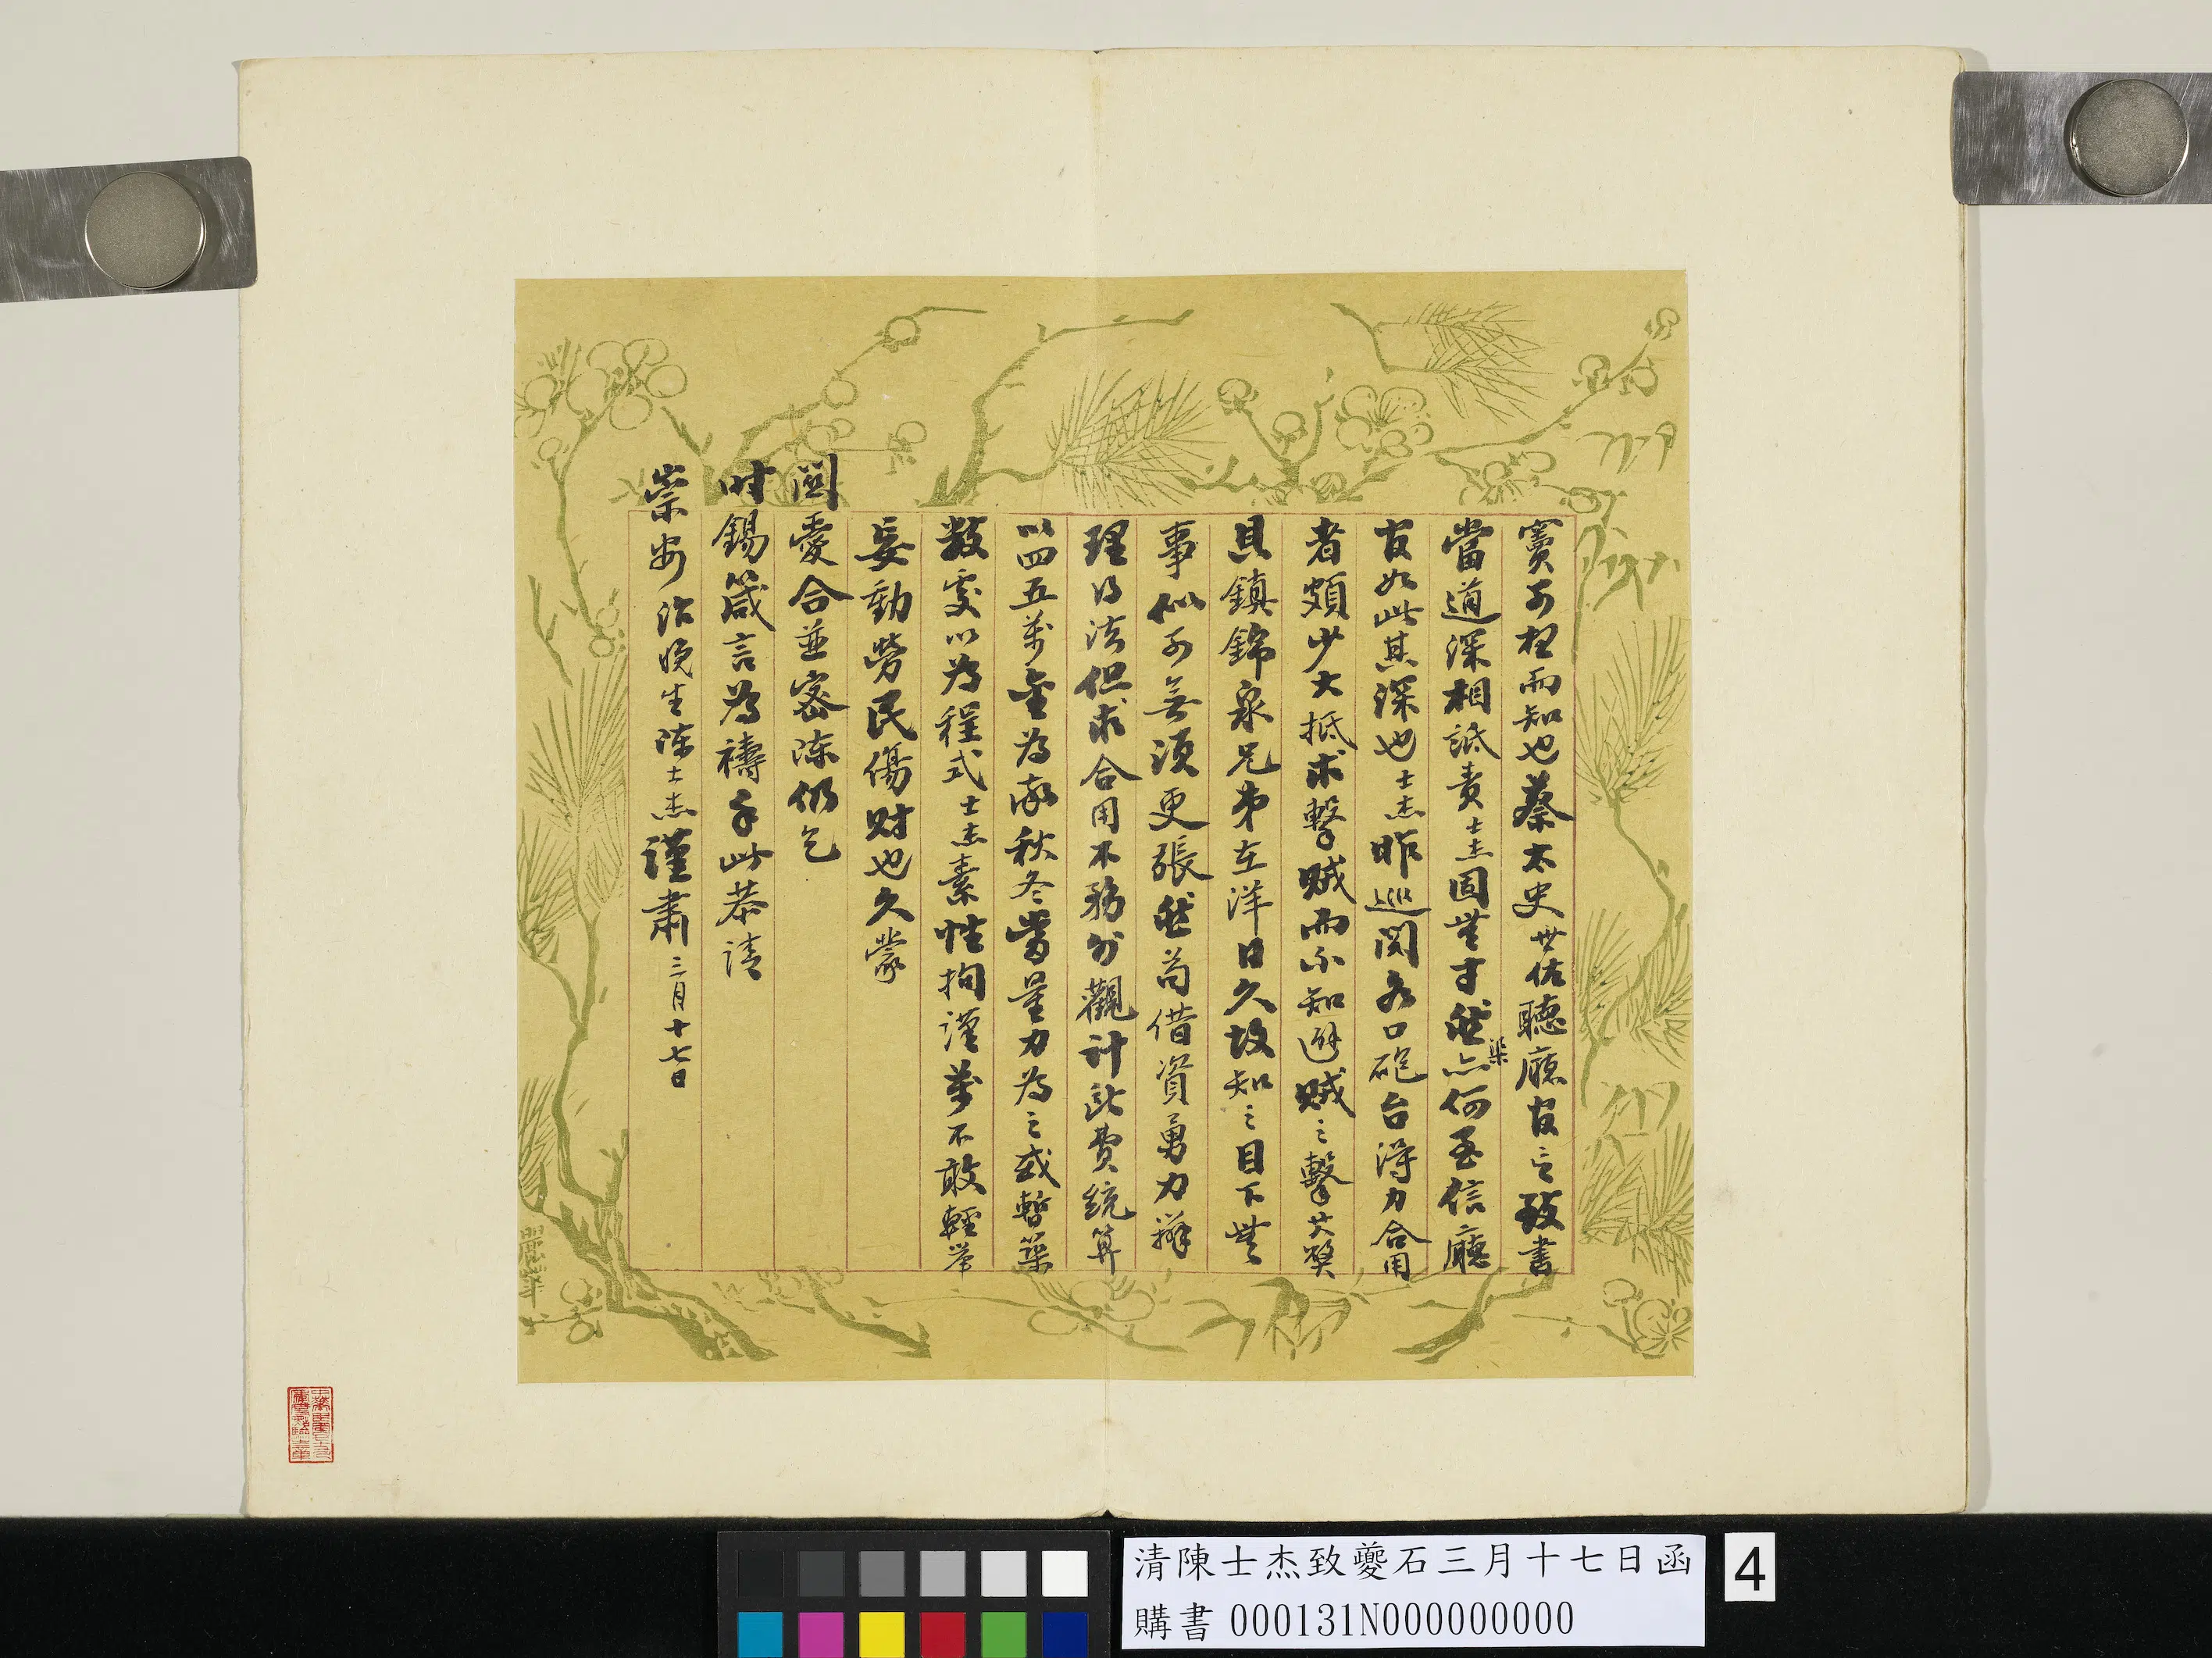 竇可想而知也蔡太史世佑聽廳官之致書
當道深相詆責士杰固無才然亦何至信廳
官如此其深也士杰昨巡閱各口砲台得力合用
者頗少大抵求擊賊而不知避賊之擊其獘
具鎮錦泉兄弟在洋日久故知之目下無
事似可無須更張然苟借資勇力辦
理得法但求合用不務外觀計此費統算
以四五萬金為率秋冬當量力為之或暫築
數處以為程式士杰素性拘謹萬不敢輕举
妄動勞民傷財也久蒙
閎愛合並密陳仍乞
时錫箴言為禱手此恭請
崇安治晚生陳士杰謹肅三月十七日
清陳士杰致夔石三月十七日函
購書 000131N000000000
4